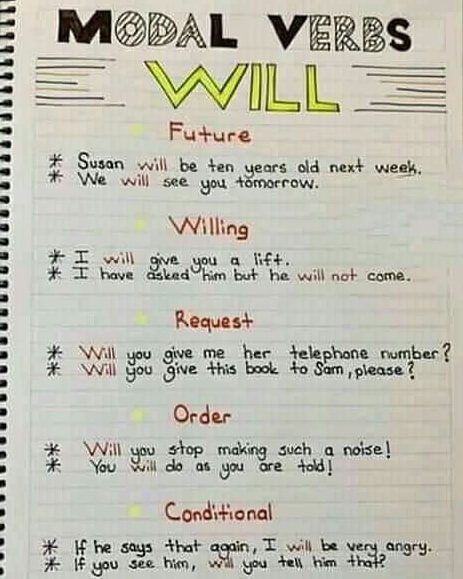 MODAL VERBS
WILL
Future
* Susan will be ten years old next week.
* We will see you tomorrow.
Willing
* I will give you a lift.
* I have asked him but he will not come.
Request
* Will you give me her telephone number?
* Will you give this book to Sam, please?
Order
* Will you stop making such a noise!
* You will do as you are told!
Conditional
* If he says that again, I will be very angry.
* If you see him, will you tell him that?